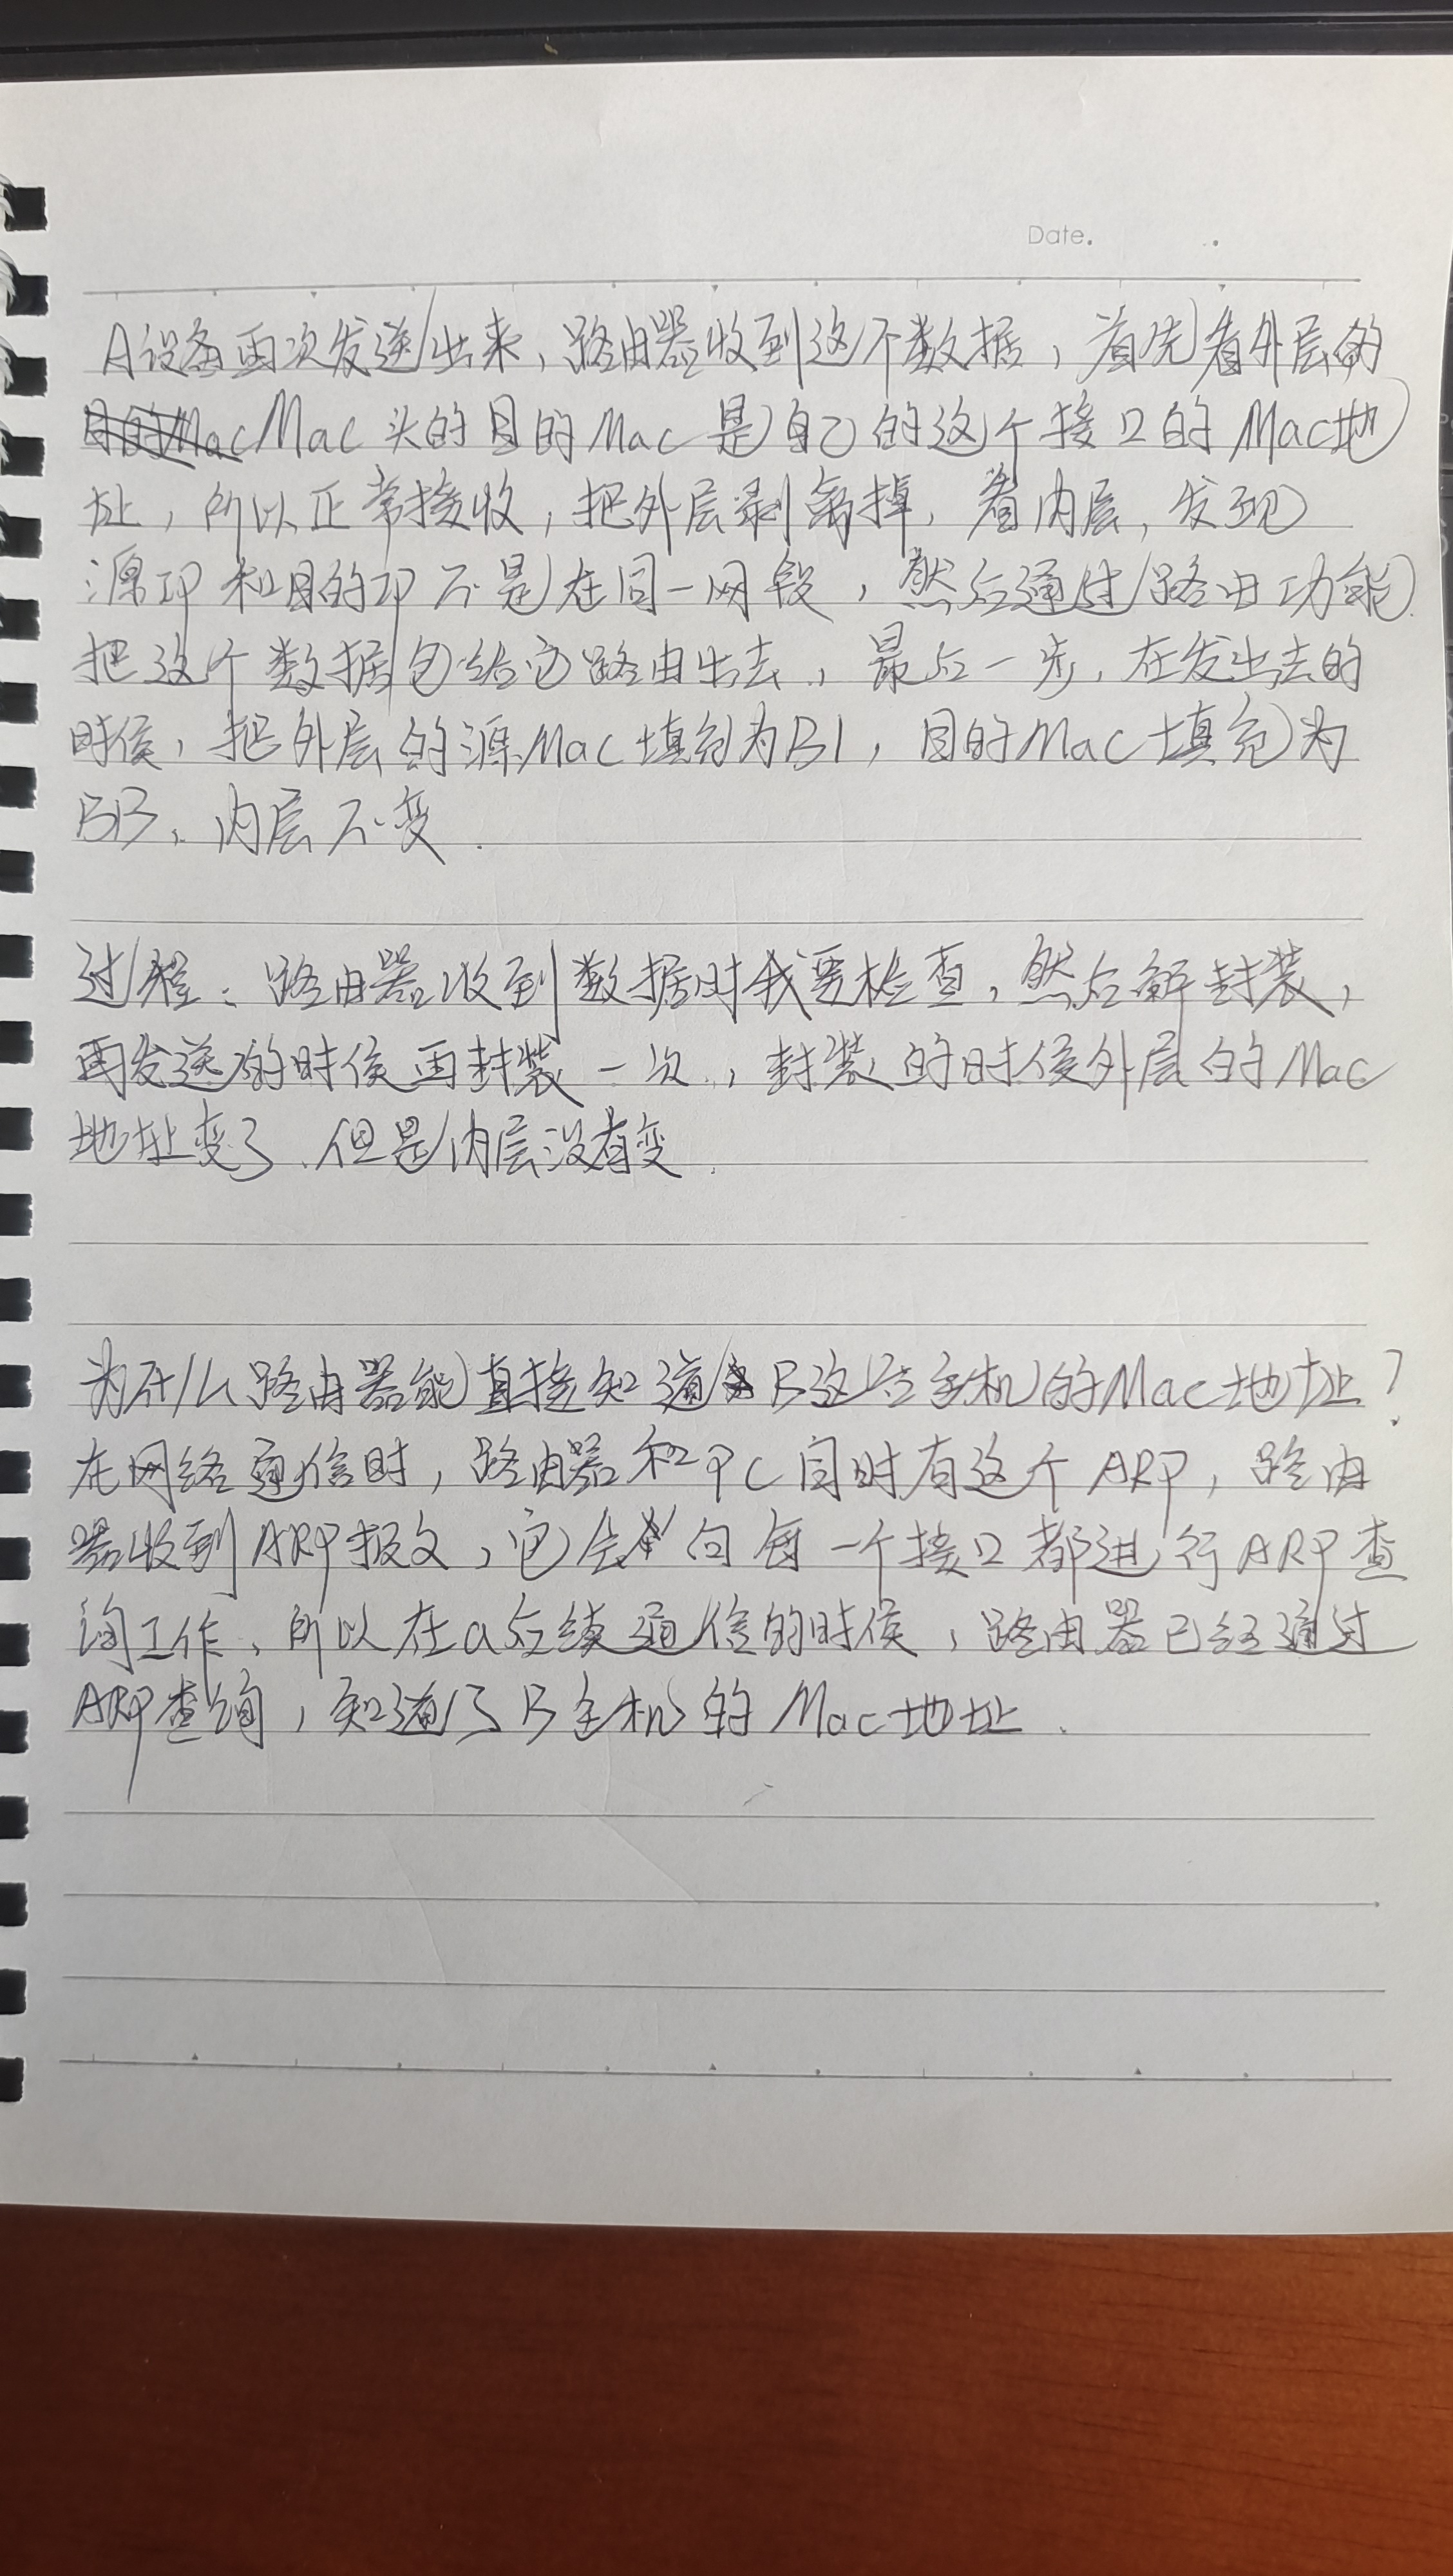 Date.
A设备再次发送出来，路由器收到这个数据，首先看外层的
Mac头的目的Mac是自己的这个接口的Mac地
址，所以正常接收，把外层剥离掉，看内层，发现
源IP和目的IP不是在同一网段，然后通过路由功能
把这个数据包给它路由出去，最后一步，在发出去的
时候，把外层的源Mac填充为B1，目的Mac填充为
BB，内层不变．
过程：路由器收到数据时我要检查，然后解封装，
再发送的时候再封装一次，封装的时候外层的Mac
地址变了、但是内层没有变．
为什么路由器能直接知道B这些主机的Mac地址？
在网络通信时，路由器和PC同时有这个ARP，路由
器收到ARP报文，它会向每一个接口都进行ARP查
询工作，所以在a后续通信的时候，路由器已经通过
ARP查询，知道了B主机的Mac地址．